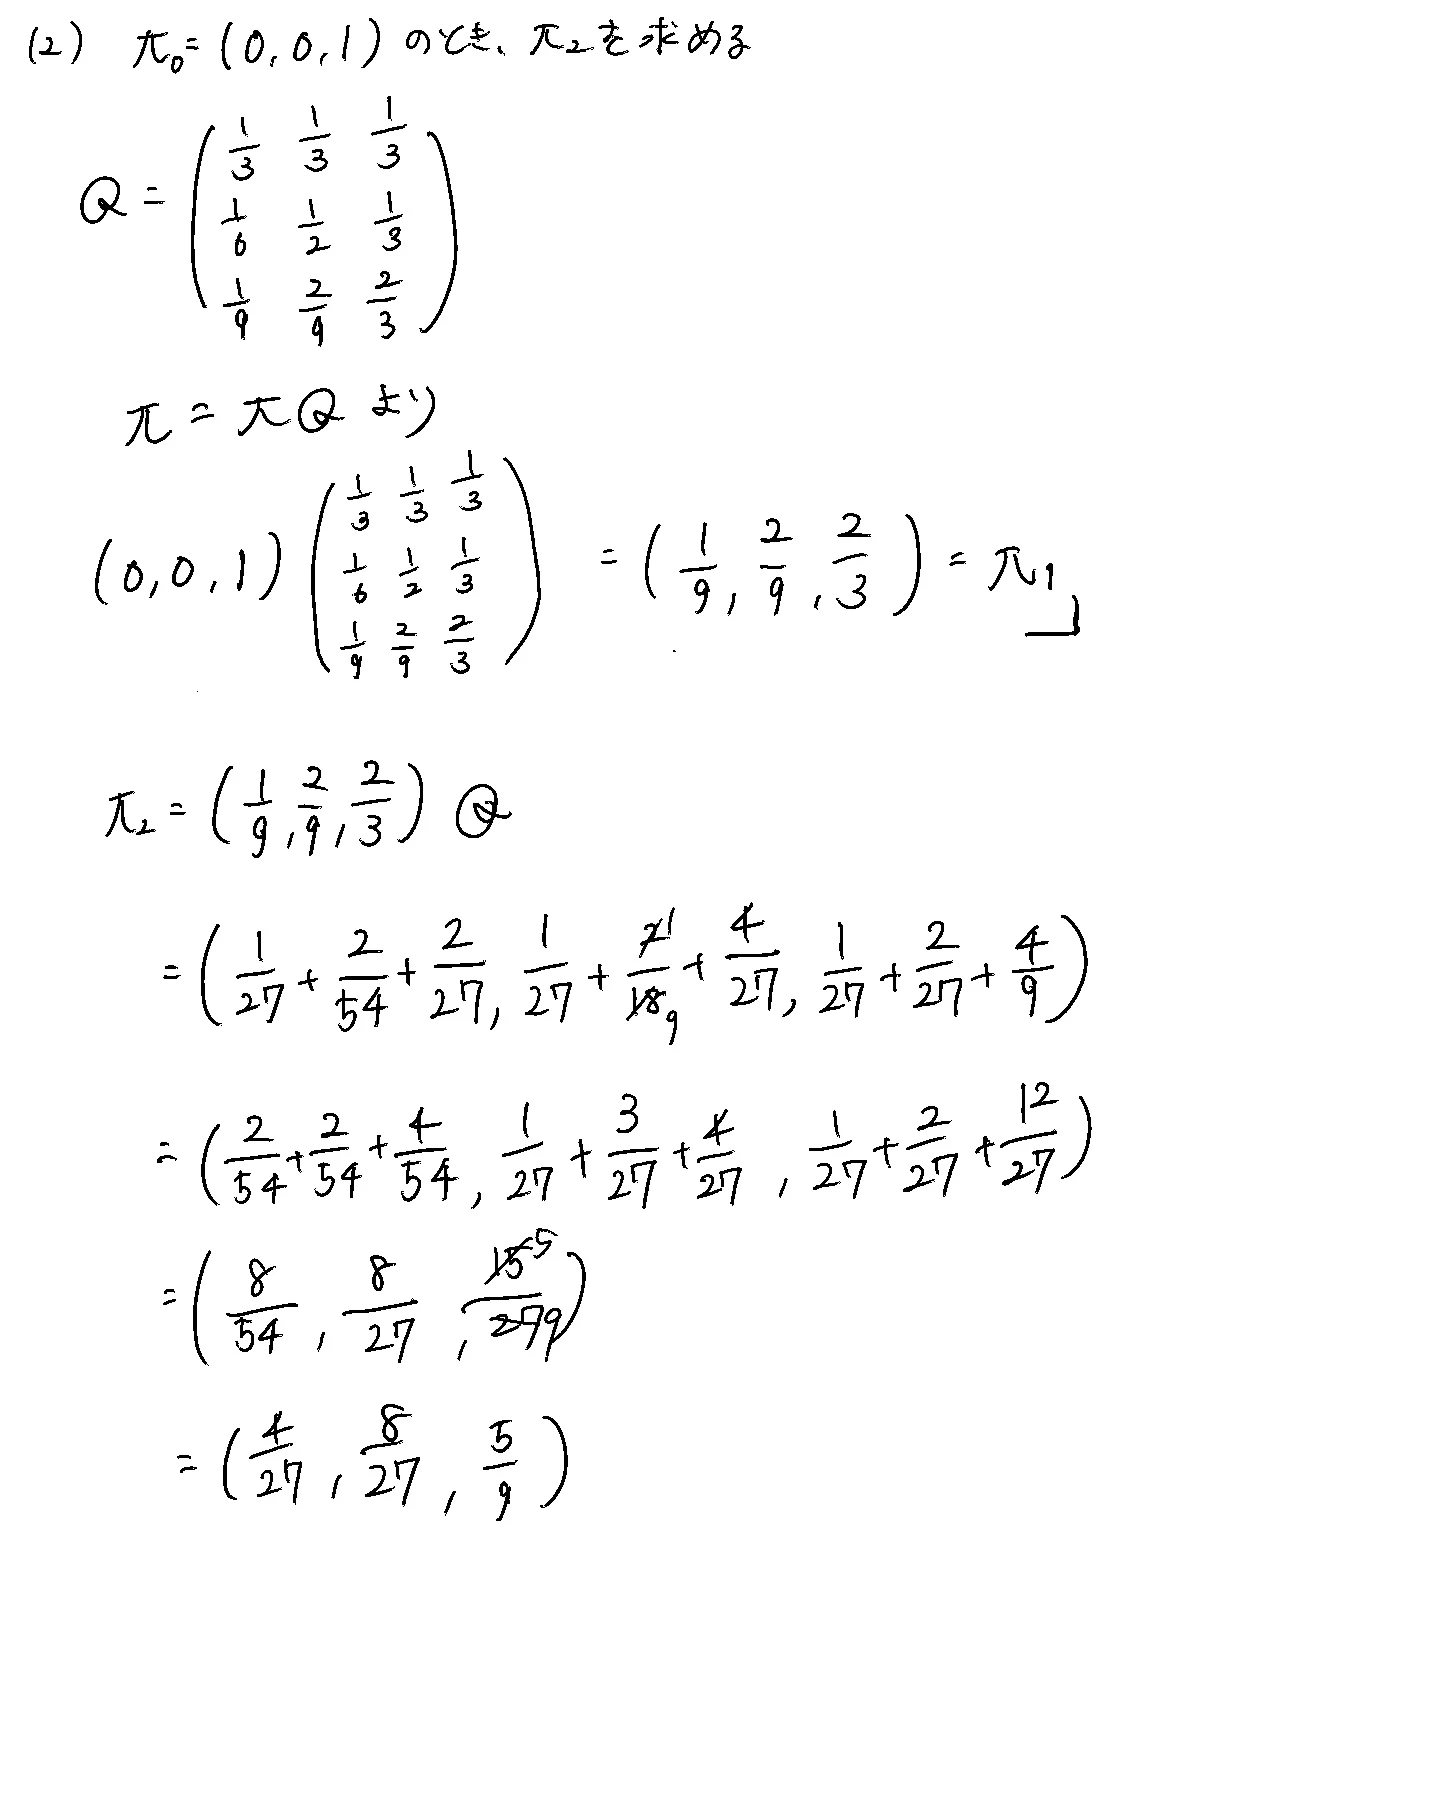 (2) π₀ = (0, 0, 1) のとき、π₂を求める
Q = ( 1/3 1/3 1/3
1/6 1/2 1/3
1/9 2/9 2/3 )
π = πQ より
(0, 0, 1) ( 1/3 1/3 1/3
1/6 1/2 1/3
1/9 2/9 2/3 ) = (1/9, 2/9, 2/3) = π₁
π₂ = (1/9, 2/9, 2/3) Q
= (1/27 + 2/54 + 2/27, 1/27 + 2/18 1/9 + 4/27, 1/27 + 2/27 + 4/9)
= (2/54 + 2/54 + 4/54, 1/27 + 3/27 + 4/27, 1/27 + 2/27 + 12/27)
= (8/54, 8/27, 15/27 5/9)
= (4/27, 8/27, 5/9)